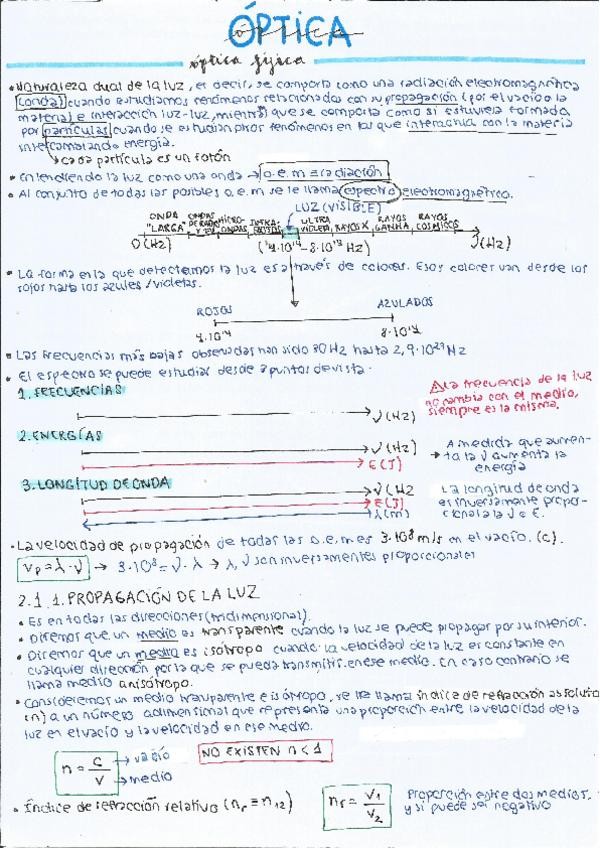 ÓPTICA
óptica física
• Naturaleza dual de la luz, es decir, se comporta como una radiación electromagnética
(onda) cuando estudiamos fenómenos relacionados con su propagación (por el vacío o la
materia) e interacción luz-luz, mientras que se comporta como si estuviera formada
por partículas cuando se estudian otros fenómenos en los que interactúa con la materia
intercambiando energía.
↳ cada partícula es un fotón
• Entendiendo la luz como una onda → o.e.m ≡ radiación
• Al conjunto de todas las posibles o.e.m se le llama espectro electromagnético.
LUZ (VISIBLE)
ONDA "LARGA" ONDAS DE RADIO Y TV MICRO-ONDAS INFRA-ROJOS ULTRA VIOLETA RAYOS X RAYOS GAMMA RAYOS COSMICOS
0 (Hz) (4·10¹⁴ - 8·10¹⁴ Hz) ν(Hz)
• La forma en la que detectamos la luz es a través de colores. Esos colores van desde los
rojos hasta los azules/violetas.
ROJOS AZULADOS
4·10¹⁴ 8·10¹⁴
• Las frecuencias más bajas observadas han sido 30 Hz hasta 2,9·10²⁷ Hz
• El espectro se puede estudiar desde 3 puntos de vista.
1. FRECUENCIAS
⚠ La frecuencia de la luz
no cambia con el medio,
siempre es la misma.
ν(Hz)
2. ENERGÍAS
ν(Hz)
E(J)
→ A medida que aumen-
ta la ν aumenta la
energía
3. LONGITUD DE ONDA
ν(Hz
E(J)
λ(m)
La longitud de onda
es inversamente propor-
cional a la ν o E.
• La velocidad de propagación de todas las o.e.m es 3·10⁸ m/s en el vacío. (c).
vp = λ·ν → 3·10⁸ = ν·λ → λ, ν son inversamentes proporcionales
2.1.1. PROPAGACIÓN DE LA LUZ
• Es en todas las direcciones (tridimensional).
• Diremos que un medio es transparente cuando la luz se puede propagar por su interior.
• Diremos que un medio es isótropo cuando la velocidad de la luz es constante en
cualquier dirección por la que se pueda transmitir en ese medio. En caso contrario se
llama medio anisótropo.
• Consideremos un medio transparente e isótropo, se le llama índice de refracción absoluto
(n) a un número adimensional que representa una proporción entre la velocidad de la
luz en el vacío y la velocidad en ese medio.
n = c/v → vacío → medio
NO EXISTEN n < 1
• Índice de refracción relativo (nr ≡ n12) nr = v1/v2
Proporción entre dos medios,
y sí puede ser negativo